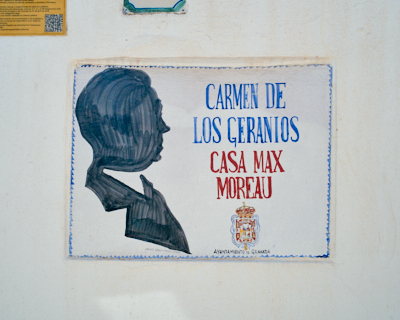 CARMEN DE
LOS GERANIOS
CASA MAX
MOREAU
AYUNTAMIENTO DE GRANADA